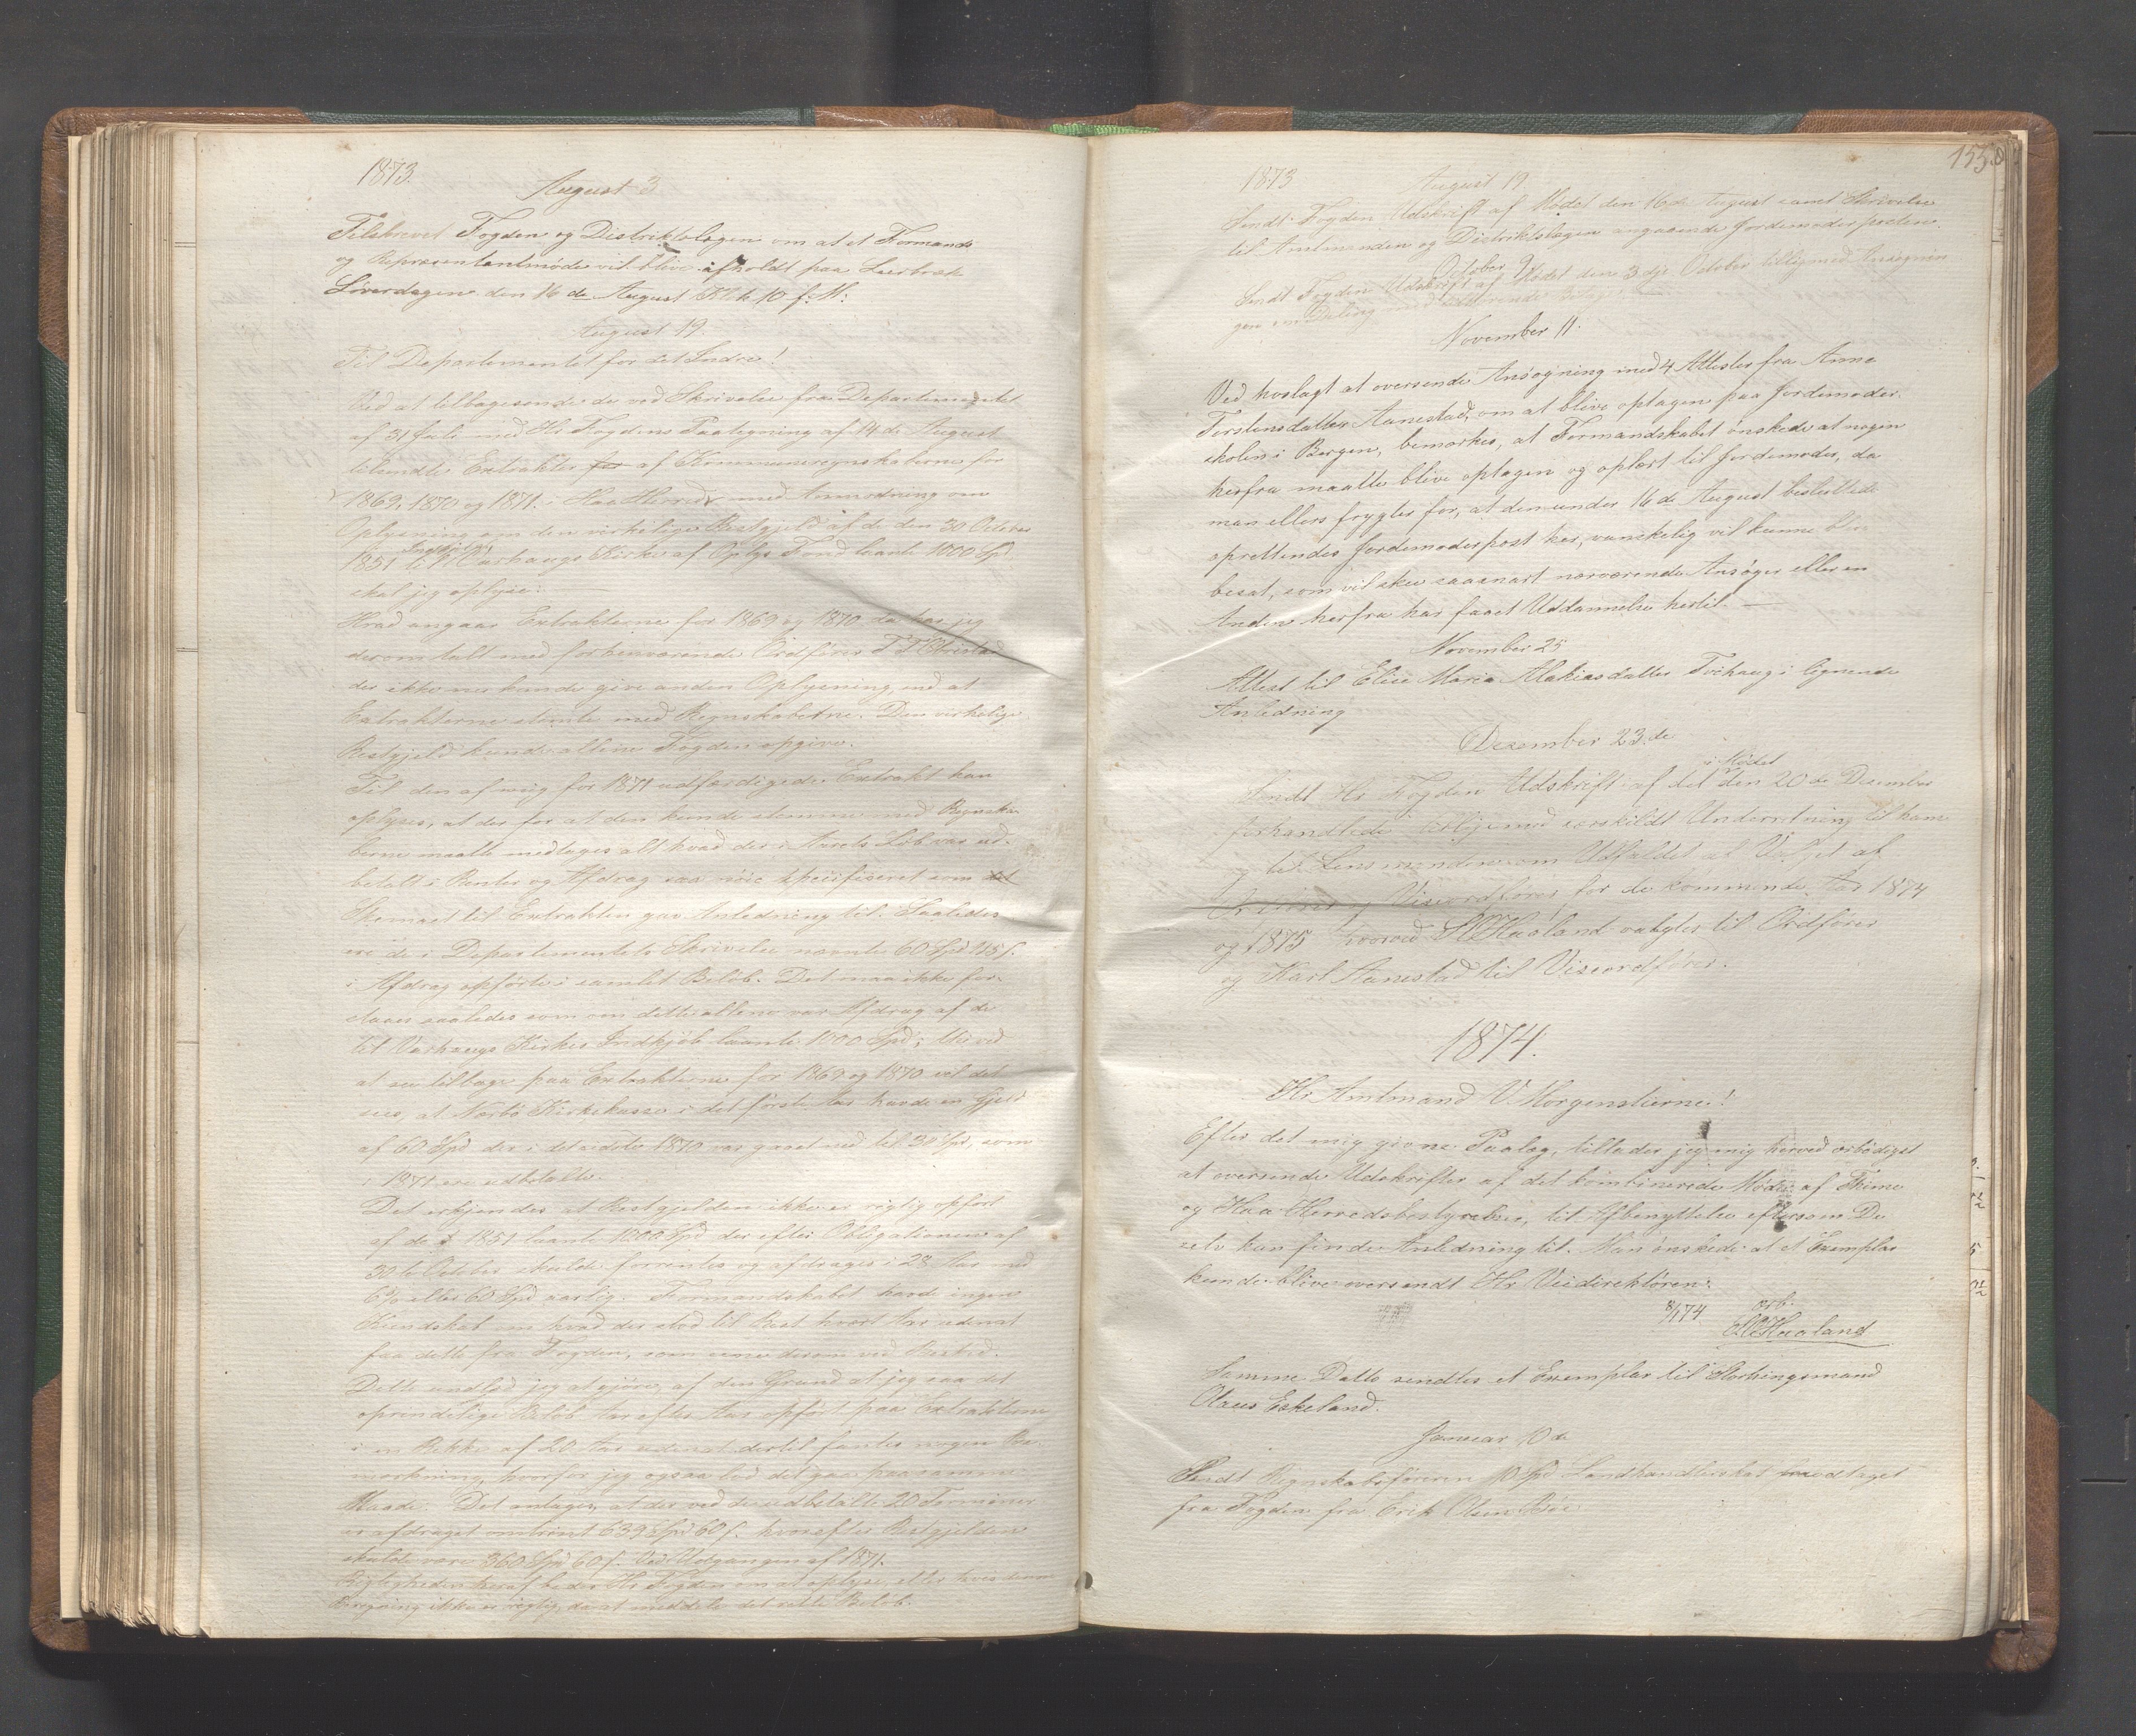 1873.
August 3
Tilskrevet Fogden og Distriktslægen om at et Formands
og Repræsentantmøde vil blive afholdt paa Lierbræk
Løverdagen den 16 de August Kl. 10 f. M.
August 19.
Til Departementet for det Indre!
Ved at tilbagesende de ved Skrivelse fra Departementet
af 31 Juli med Hr Fogdens Paategning af 14 de August
tilsendte Extrakter for af Kommuneregnskaberne for
1869, 1870 og 1871 i Haa Herred med Anmodning om
Oplysning om den virkelige Restgjeld af de den 30 October
1851 til Indkjøb Varhaugs Kirke af Oplys. Fond laante 1000 Spd.
skal jeg oplyse:
Hvad angaar Extrakterne for 1869 og 1870 da har jeg
derom talt med forhenværende Ordfører T T Obrestad
der ikke nu kunde give anden Oplysning, end at
Extrakterne stemte med Regnskaberne. Den virkelige
Restgjeld kunde allene Fogden opgive.
Til den af mig for 1871 udfærdigede Extrakt kan
oplyses, at der for at den kunde stemme med Regnska-
berne maatte medtages alt hvad der i Aarets Løb var ud-
betalt i Renter og Afdrag saa nøie specificeret som det
Skemaet til Extrakten gav Anledning til. Saaledes
ere de i Departementets Skrivelse nævnte 60 Spd 45 s.
i Afdrag opførte i samlet Beløb. Det maa ikke for-
staaes saaledes som om dette allene var Afdrag af de
til Varhaugs Kirkes Indkjøb laante 1000 Spd; thi ved
at se tilbage paa Extrakterne for 1869 og 1870 vil det
sees, at Nærbø Kirkekasse i det første Aar havde en Gjeld
af 60 Spd der i det sidste 1870 var gaaet ned til 30 Spd, som
i 1871 ere udbetalte.
Det erkjendes at Restgjelden ikke er rigtig opført
af de i 1851 laante 1000 Spd der efter Obligationen af
30 te October skulde forrentes og afdrages i 28 Aar med
6% eller 60 Spd aarlig. Formandskabet havde ingen
Kundskab om hvad der stod til Rest hvert Aar uden at
faa dette fra Fogden, som derom ved Besked.
Dette undlod jeg at gjøre, af den Grund at jeg saa det
oprindelige Beløb Aar efter Aar opført paa Extrakterne
i en Rekke af 20 Aar uden at dertil fantes nogen Be-
mærkning, hvorfor jeg ogsaa lod det gaa paa samme
Maade. Det antages, at der ved de udbetalte 20 Terminer
er afdraget omtrent 639 Spd 60 s. hvorefter Restgjelden
skulde være 360 Spd 60 s. Ved Udgangen af 1871.
Rigtigheden heraf bedes Hr Fogden om at oplyse, eller hvis denne
Beregning ikke er rigtig, da at meddele det rette Beløb.
155
1873
August 19
Sendt Fogden Udskrift af Mødet den 16 de August samt Skrivelse
til Amtmanden og Distriktslægen angaaende Jordemoderposten.
October 9
Sendt Fogden Udskrift af Mødet den 3 dje October tilligemed Ansøgnin
gen
November 11.
Ved hoslagt at oversende Ansøgning med 4 Attester fra Anne
Torstensdatter Aanestad, om at blive optagen paa Jordemoder-
skolen i Bergen, bemærkes, at Formandskabet ønskede at nogen
herfra maatte blive optagen og oplært til Jordemoder, da
man ellers frygter for, at den under 16 de August besluttede
oprettendes Jordemoderpost her, vanskelig vil kunne blive
besat, som vil skee saasnart nærværende Ansøger eller en
Anden herfra har faaet Uddannelse hertil. —
November 25
Attest til Elise Maria Malakiasdatter Tvihaug i lignende
Anledning
December 23. de
Sendt Hr Fogden Udskrift af det i Mødet den 20 de December
forhandlede tilligemed særskildt Underretning til ham
og til Lensmanden om Udfaldet af Valget af
Ordfører og Viseordfører for de kommende Aar 1874
og 1875 hvorved Haaland valgtes til Ordfører
og Karl Aanestad til Viseordfører.
1874.
Hr Amtmand V. Morgenstierne!
Efter det mig givne Paalæg, tillader jeg mig herved ærbødigst
at oversende Udskrifter af det kombinerede Møde af Thime
og Haa Herredsbestyrelser, til Afbenyttelse eftersom De
selv kan finde Anledning til. Man ønskede at et Exemplar
kunde blive oversendt Hr Veidirektøren.
8/1 74 ærb.
Haaland
Samme Datto sendtes et Exemplar til Storthingsmand
Olaus Eskeland.
Januar 10 de
Sendt Regnskabsføreren 10 Spd Landhandlerskat modtaget
fra Fogden fra Erik Olsen Bøe